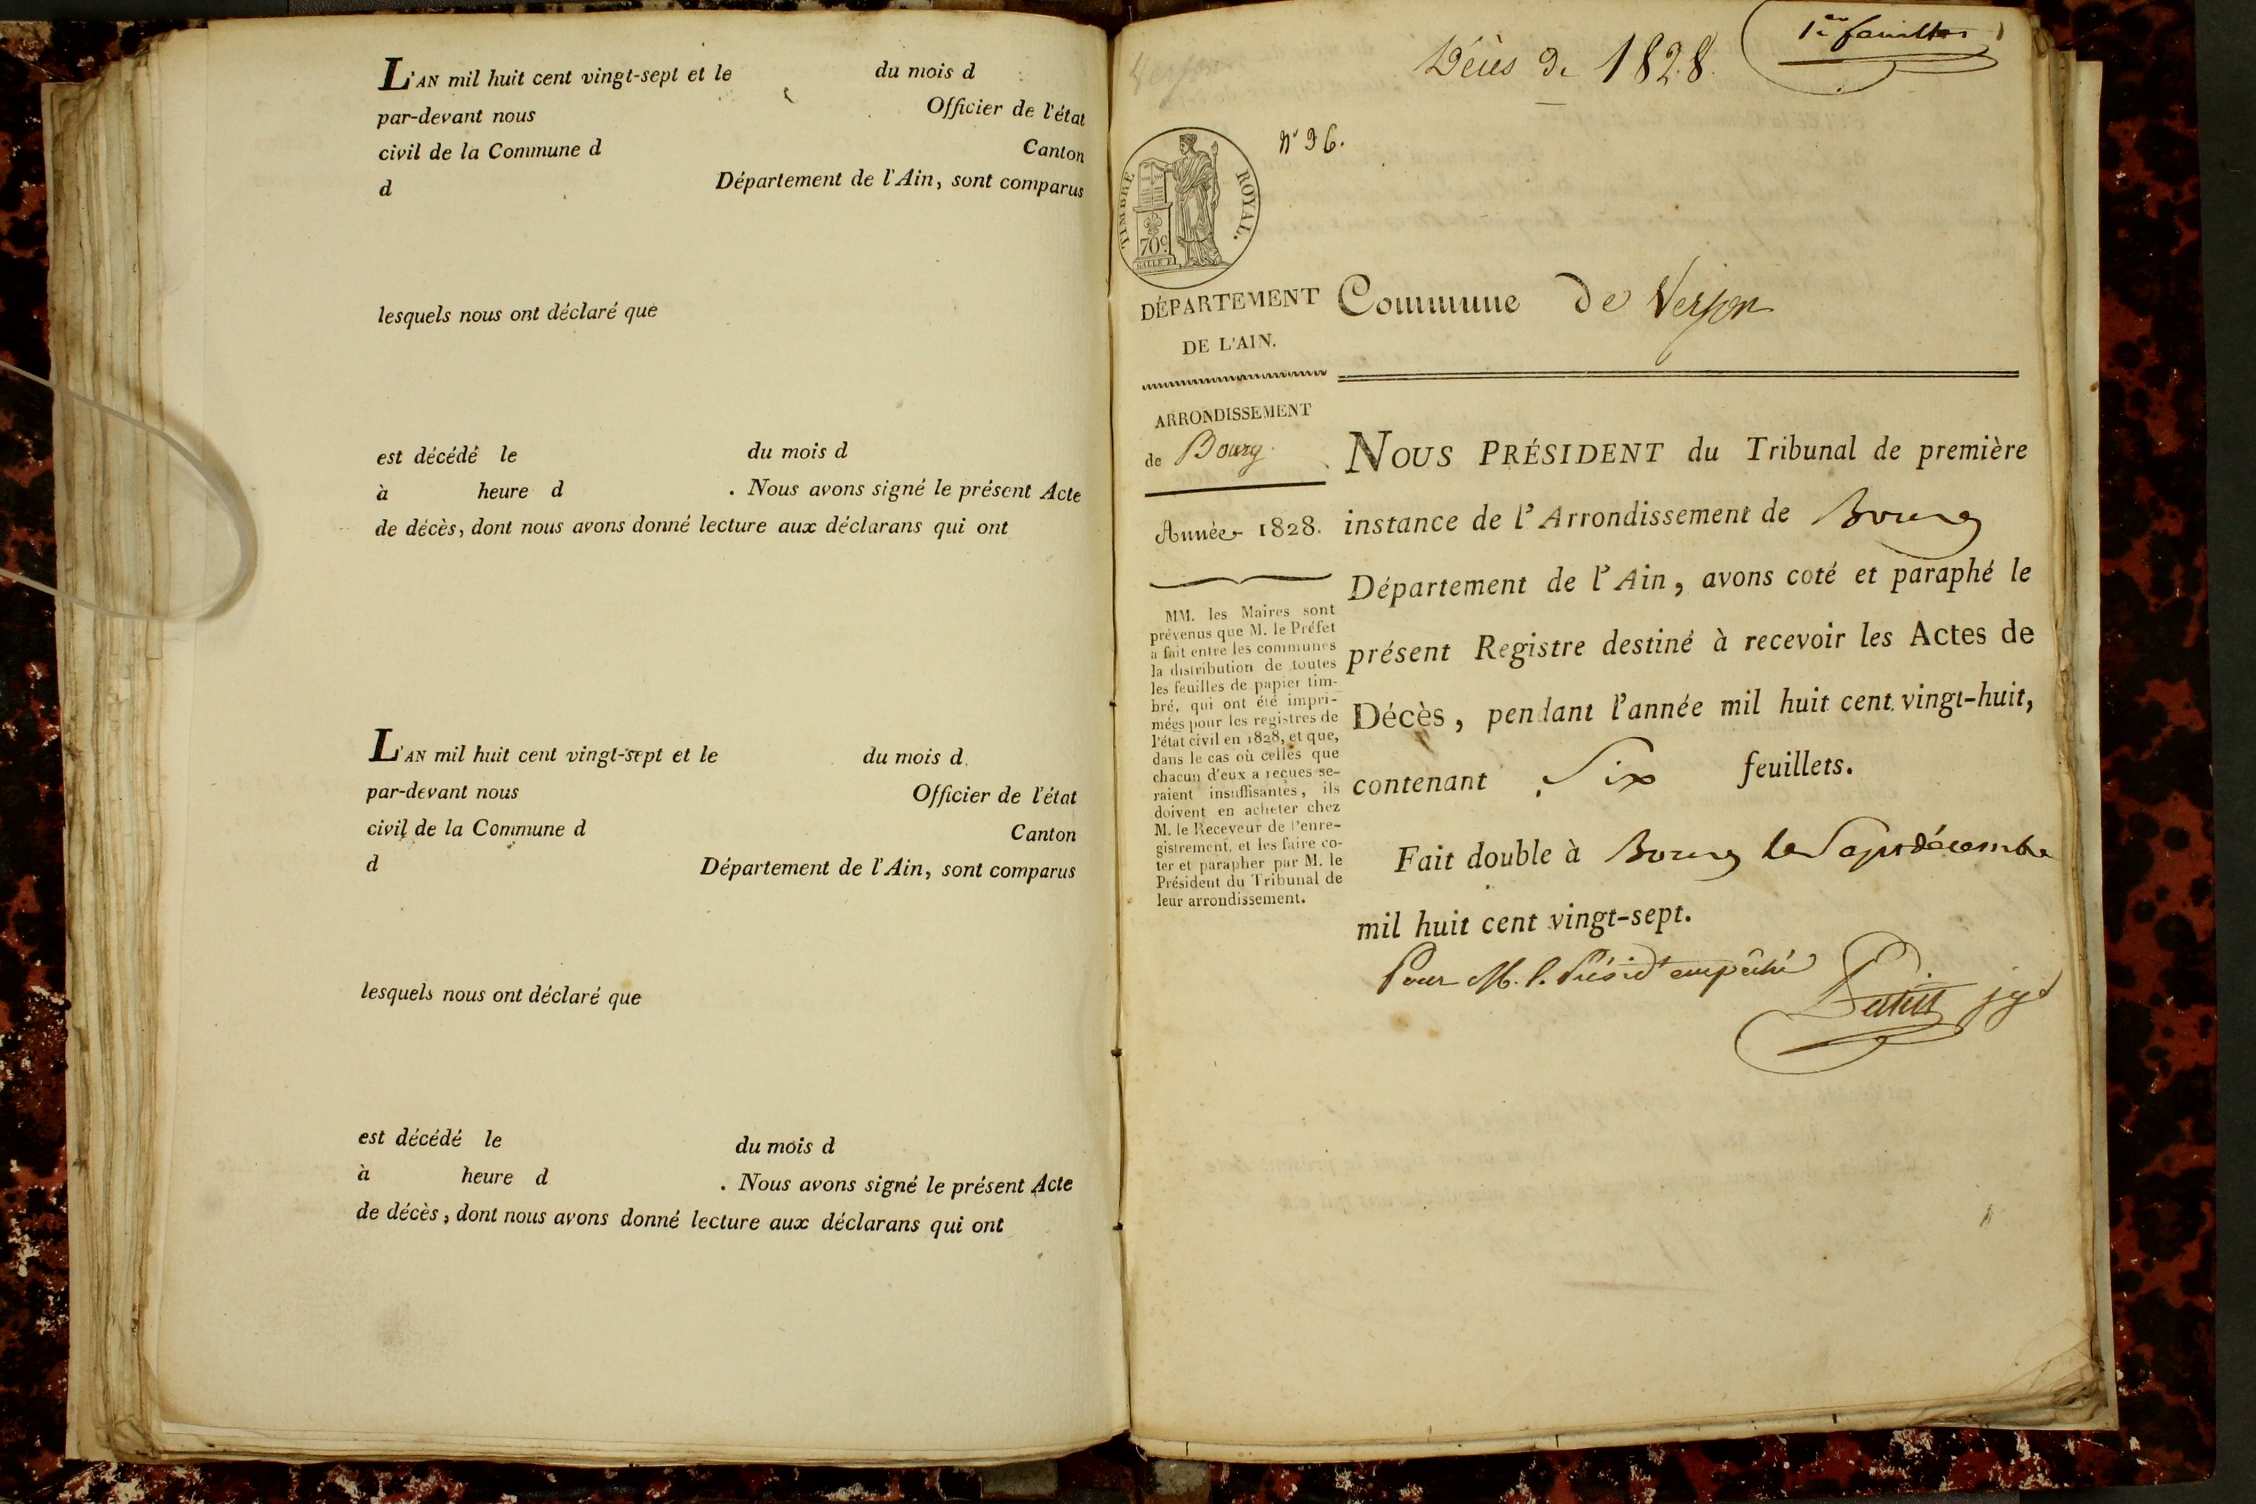 L'AN mil huit cent vingt-sept et le du mois d
par-devant nous Officier de l'état
civil de la Commune d Canton
d Département de l'Ain, sont comparus
lesquels nous ont déclaré que
est décédé le du mois d
à heure d . Nous avons signé le présent Acte
de décès, dont nous avons donné lecture aux déclarans qui ont
L'AN mil huit cent vingt-sept et le du mois d
par-devant nous Officier de l'état
civil de la Commune d Canton
d Département de l'Ain, sont comparus
lesquels nous ont déclaré que
est décédé le du mois d
à heure d . Nous avons signé le présent Acte
de décès, dont nous avons donné lecture aux déclarans qui ont
Décès de 1828.
N° 36.
TIMBRE ROYAL.
70c.
DÉPARTEMENT
DE L'AIN.
ARRONDISSEMENT
de Bourg
Année 1828.
MM. les Maires sont
prévenus que M. le Préfet
a fait entre les communes
la distribution de toutes
les feuilles de papier tim-
bré, qui ont été impri-
mées pour les registres de
l'état civil en 1828, et que,
dans le cas où celles que
chacun d'eux a reçues se-
raient insuffisantes, ils
doivent en acheter chez
M. le Receveur de l'enre-
gistrement, et les faire co-
ter et parapher par M. le
Président du Tribunal de
leur arrondissement.
Commune de Verjon
NOUS PRÉSIDENT du Tribunal de première
instance de l'Arrondissement de Bourg
Département de l'Ain, avons coté et paraphé le
présent Registre destiné à recevoir les Actes de
Décès, pendant l'année mil huit cent vingt-huit,
contenant Six feuillets.
Fait double à Bourg le Sept décembre
mil huit cent vingt-sept.
Pour M. l. Présidt empêché